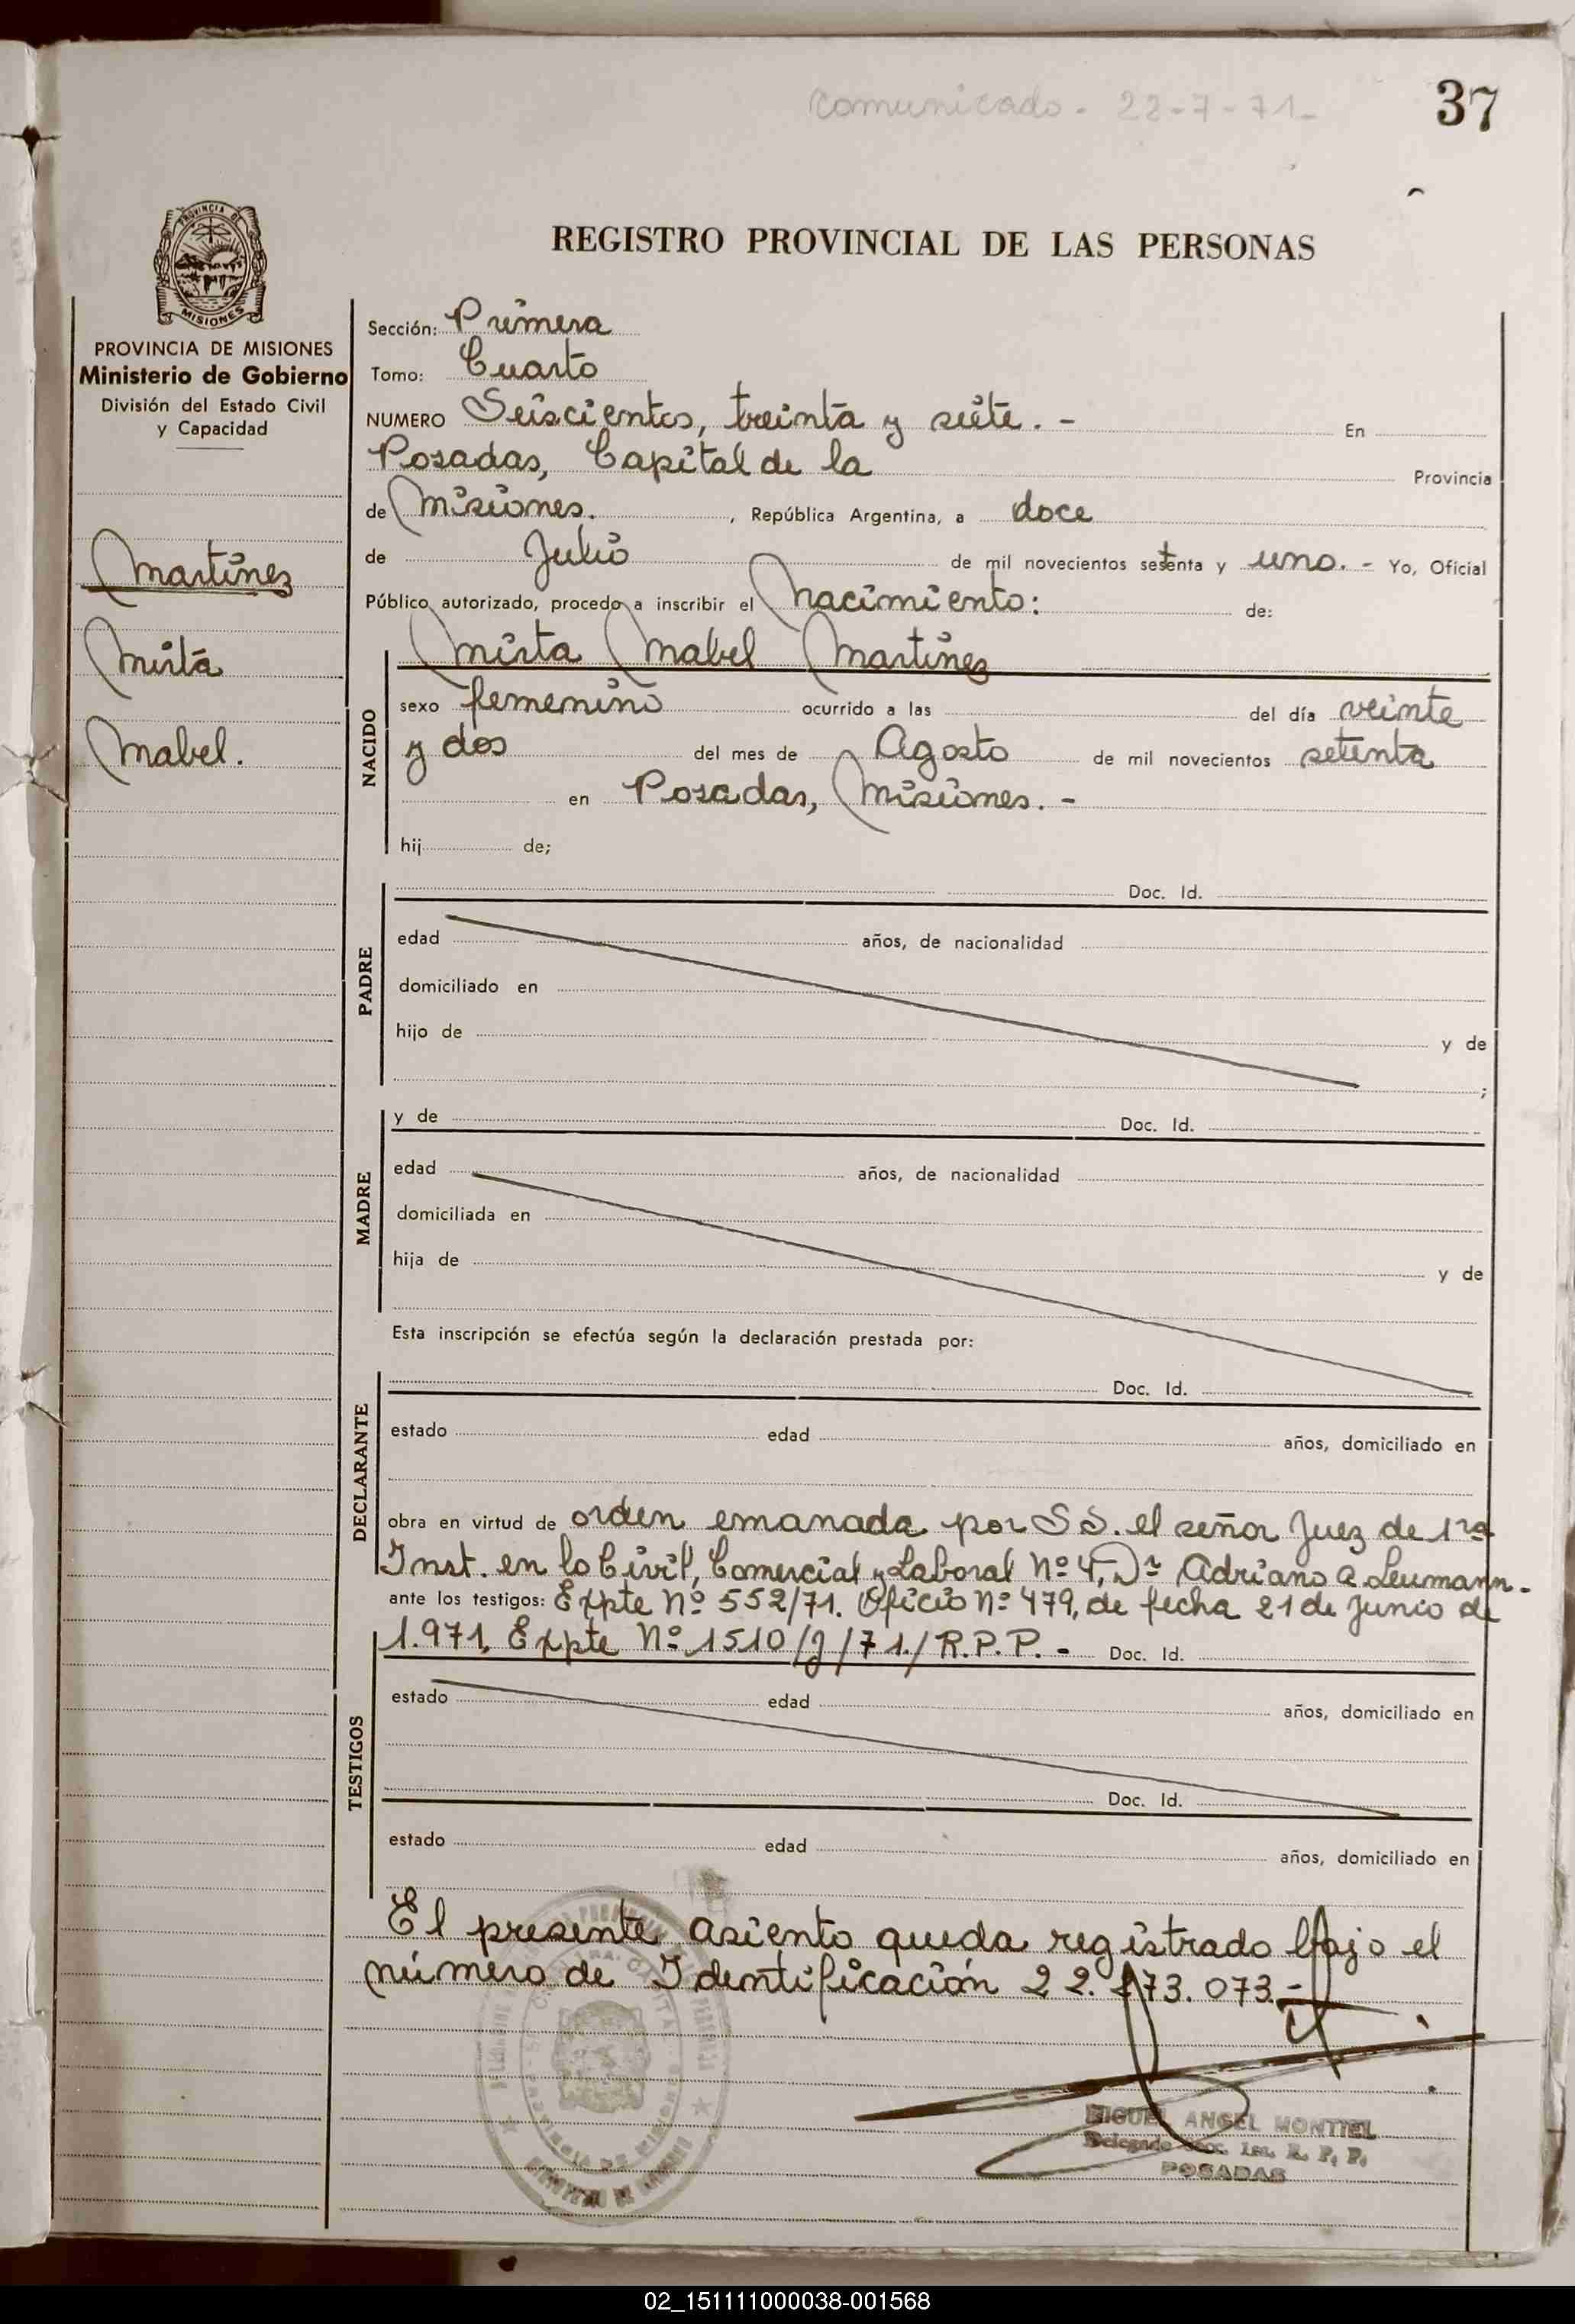 comunicado - 22-7-71-
37
PROVINCIA DE
MISIONES
REGISTRO PROVINCIAL DE LAS PERSONAS
PROVINCIA DE MISIONES
Ministerio de Gobierno
División del Estado Civil
y Capacidad
Martinez
Mirta
Mabel.
Sección: Primera
Tomo: Cuarto
NUMERO Seiscientos, treinta y siete. - En
Posadas, Capital de la Provincia
de Misiones. , República Argentina, a doce
de Julio de mil novecientos setenta y uno. - Yo, Oficial
Público autorizado, procedo a inscribir el Nacimiento: de:
Mirta Mabel Martinez
NACIDO
sexo femenino ocurrido a las del día veinte
y dos del mes de Agosto de mil novecientos setenta
en Posadas, Misiones. -
hij de;
PADRE
Doc. Id.
edad años, de nacionalidad
domiciliado en
hijo de y de
;
MADRE
y de Doc. Id.
edad años, de nacionalidad
domiciliada en
hija de y de
Esta inscripción se efectúa según la declaración prestada por:
DECLARANTE
Doc. Id.
estado edad años, domiciliado en
obra en virtud de orden emanada por S S. el señor Juez de 1ra
Inst. en lo Civil, Comercial y Laboral Nº 4, Dr Adriano A Leumann.
ante los testigos: Expte Nº 552/71. Oficio Nº 479, de fecha 21 de Junio de
1.971, Expte Nº 1510/J/71./R.P.P. - Doc. Id.
TESTIGOS
estado edad años, domiciliado en
Doc. Id.
estado edad años, domiciliado en
El presente asiento queda registrado bajo el
número de Identificación
MIGUEL ANGEL MONTIEL
Delegado Secc. 1ra. R. P. P.
POSADAS
02_151111000038-001568